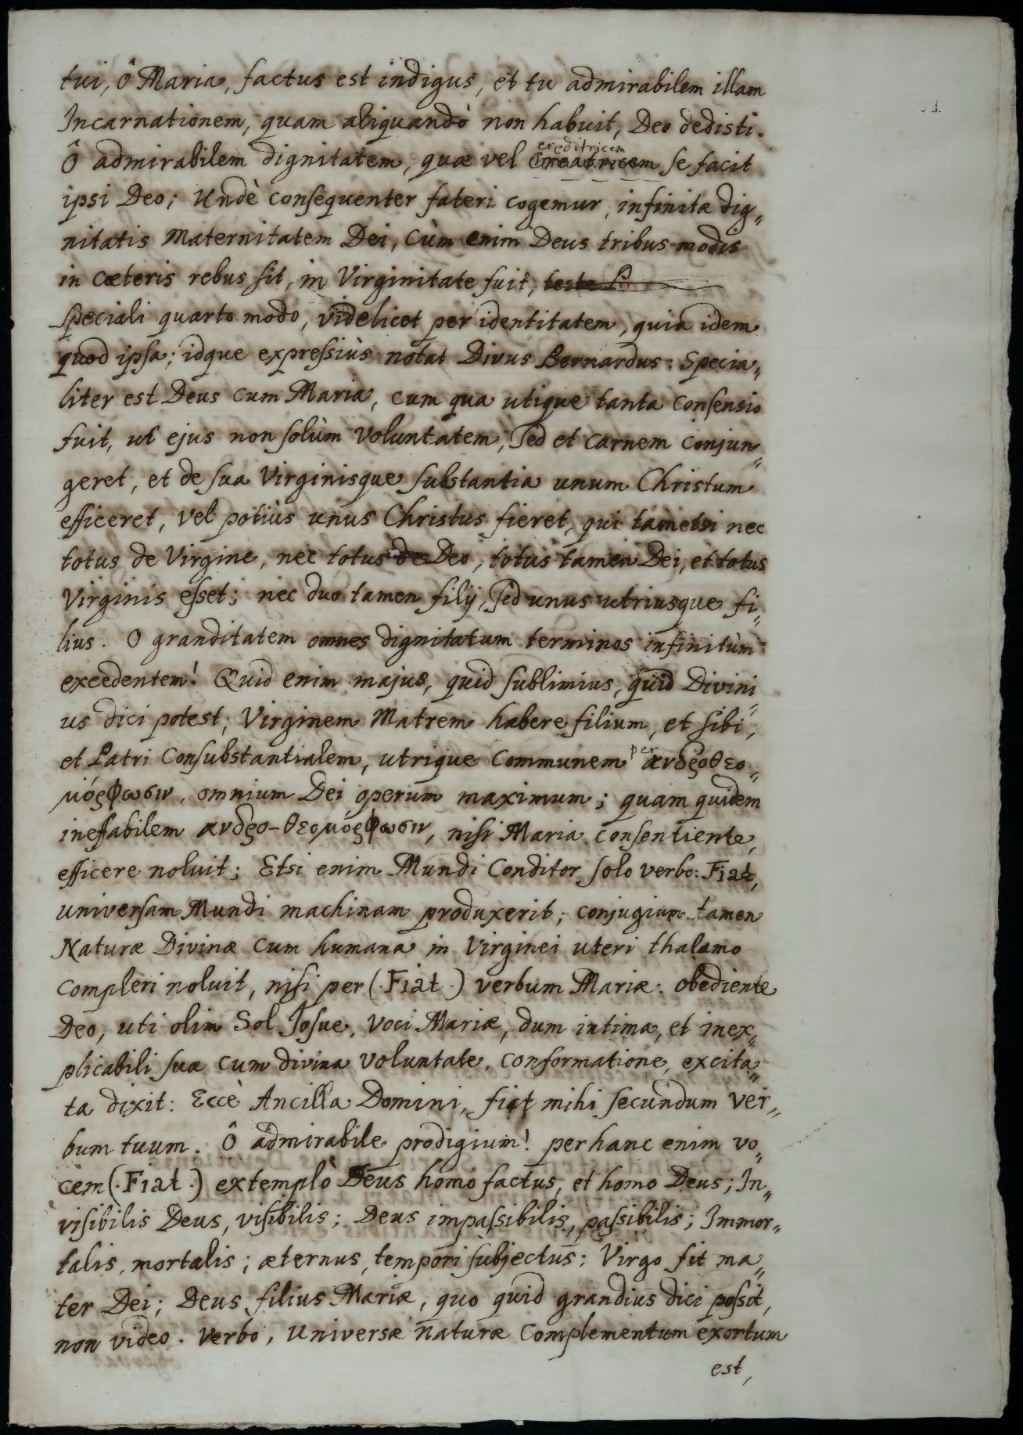 tui, ô Maria, factus est indigus, et tu admirabilem illam
Incarnationem, quam aliquandò non habuit, Deo dedisti.
creditricem
Ô admirabilem dignitatem, quæ vel Creatricem se facit
ipsi Deo; Undè consequenter fateri cogemur, infinitæ dig„
nitatis Maternitatem Dei, Cùm enim Deus tribus modis
in cæteris rebus sit, in Virginitate fuit, teste
speciali quarto modo, videlicet per identitatem, quia idem
quod ipsa; idque expressiùs notat Divus Bernardus: Specia„
liter est Deus cum Maria, cum qua utique tanta consensio
fuit, ut ejus non solùm voluntatem, sed et carnem conjun„
geret, et de sua Virginisque substantia unum Christum
efficeret, vel potiùs unus Christus fieret, qui tametsi nec
totus de Virgine, nec totus de Deo, totus tamen Dei, et totus
Virginis esset; nec duo tamen filij, sed unus utriusque fi„
lius. O granditatem omnes dignitatum terminos infinitùm
excedentem! Quid enim majus, quid sublimius, quid Divini„
us dici potest, Virginem Matrem habere filium, et sibi,
et Patri Consubstantialem, utrique communem per ανδροθεο„
μόρφωσιν, omnium Dei operum maximum; quam quidem
ineffabilem ανδρο-θεομόρφωσιν, nisi Maria consentiente,
efficere noluit; Etsi enim Mundi Conditor solo verbo: Fiat,
universam Mundi machinam produxerit; conjugium tamen
Naturæ Divinæ cum humana in Virginei uteri thalamo
compleri noluit, nisi per (·Fiat·) verbum Mariæ: obediente
Deo, uti olim Sol Josue, voci Mariæ, dum intima, et inex„
plicabili sua cum divina voluntate conformatione, excita„
ta dixit: Eccè Ancilla Domini, fiat mihi secundum ver„
bum tuum. Ô admirabile prodigium! per hanc enim vo„
cem (·Fiat·) extemplò Deus homo factus, et homo Deus; In„
visibilis Deus, visibilis; Deus impassibilis, passibilis; Immor„
talis, mortalis; æternus, tempori subjectus: Virgo fit ma„
ter Dei; Deus filius Mariæ, quo quid grandius dici possit,
non video. Verbo, Universæ naturæ complementum exortum
est,